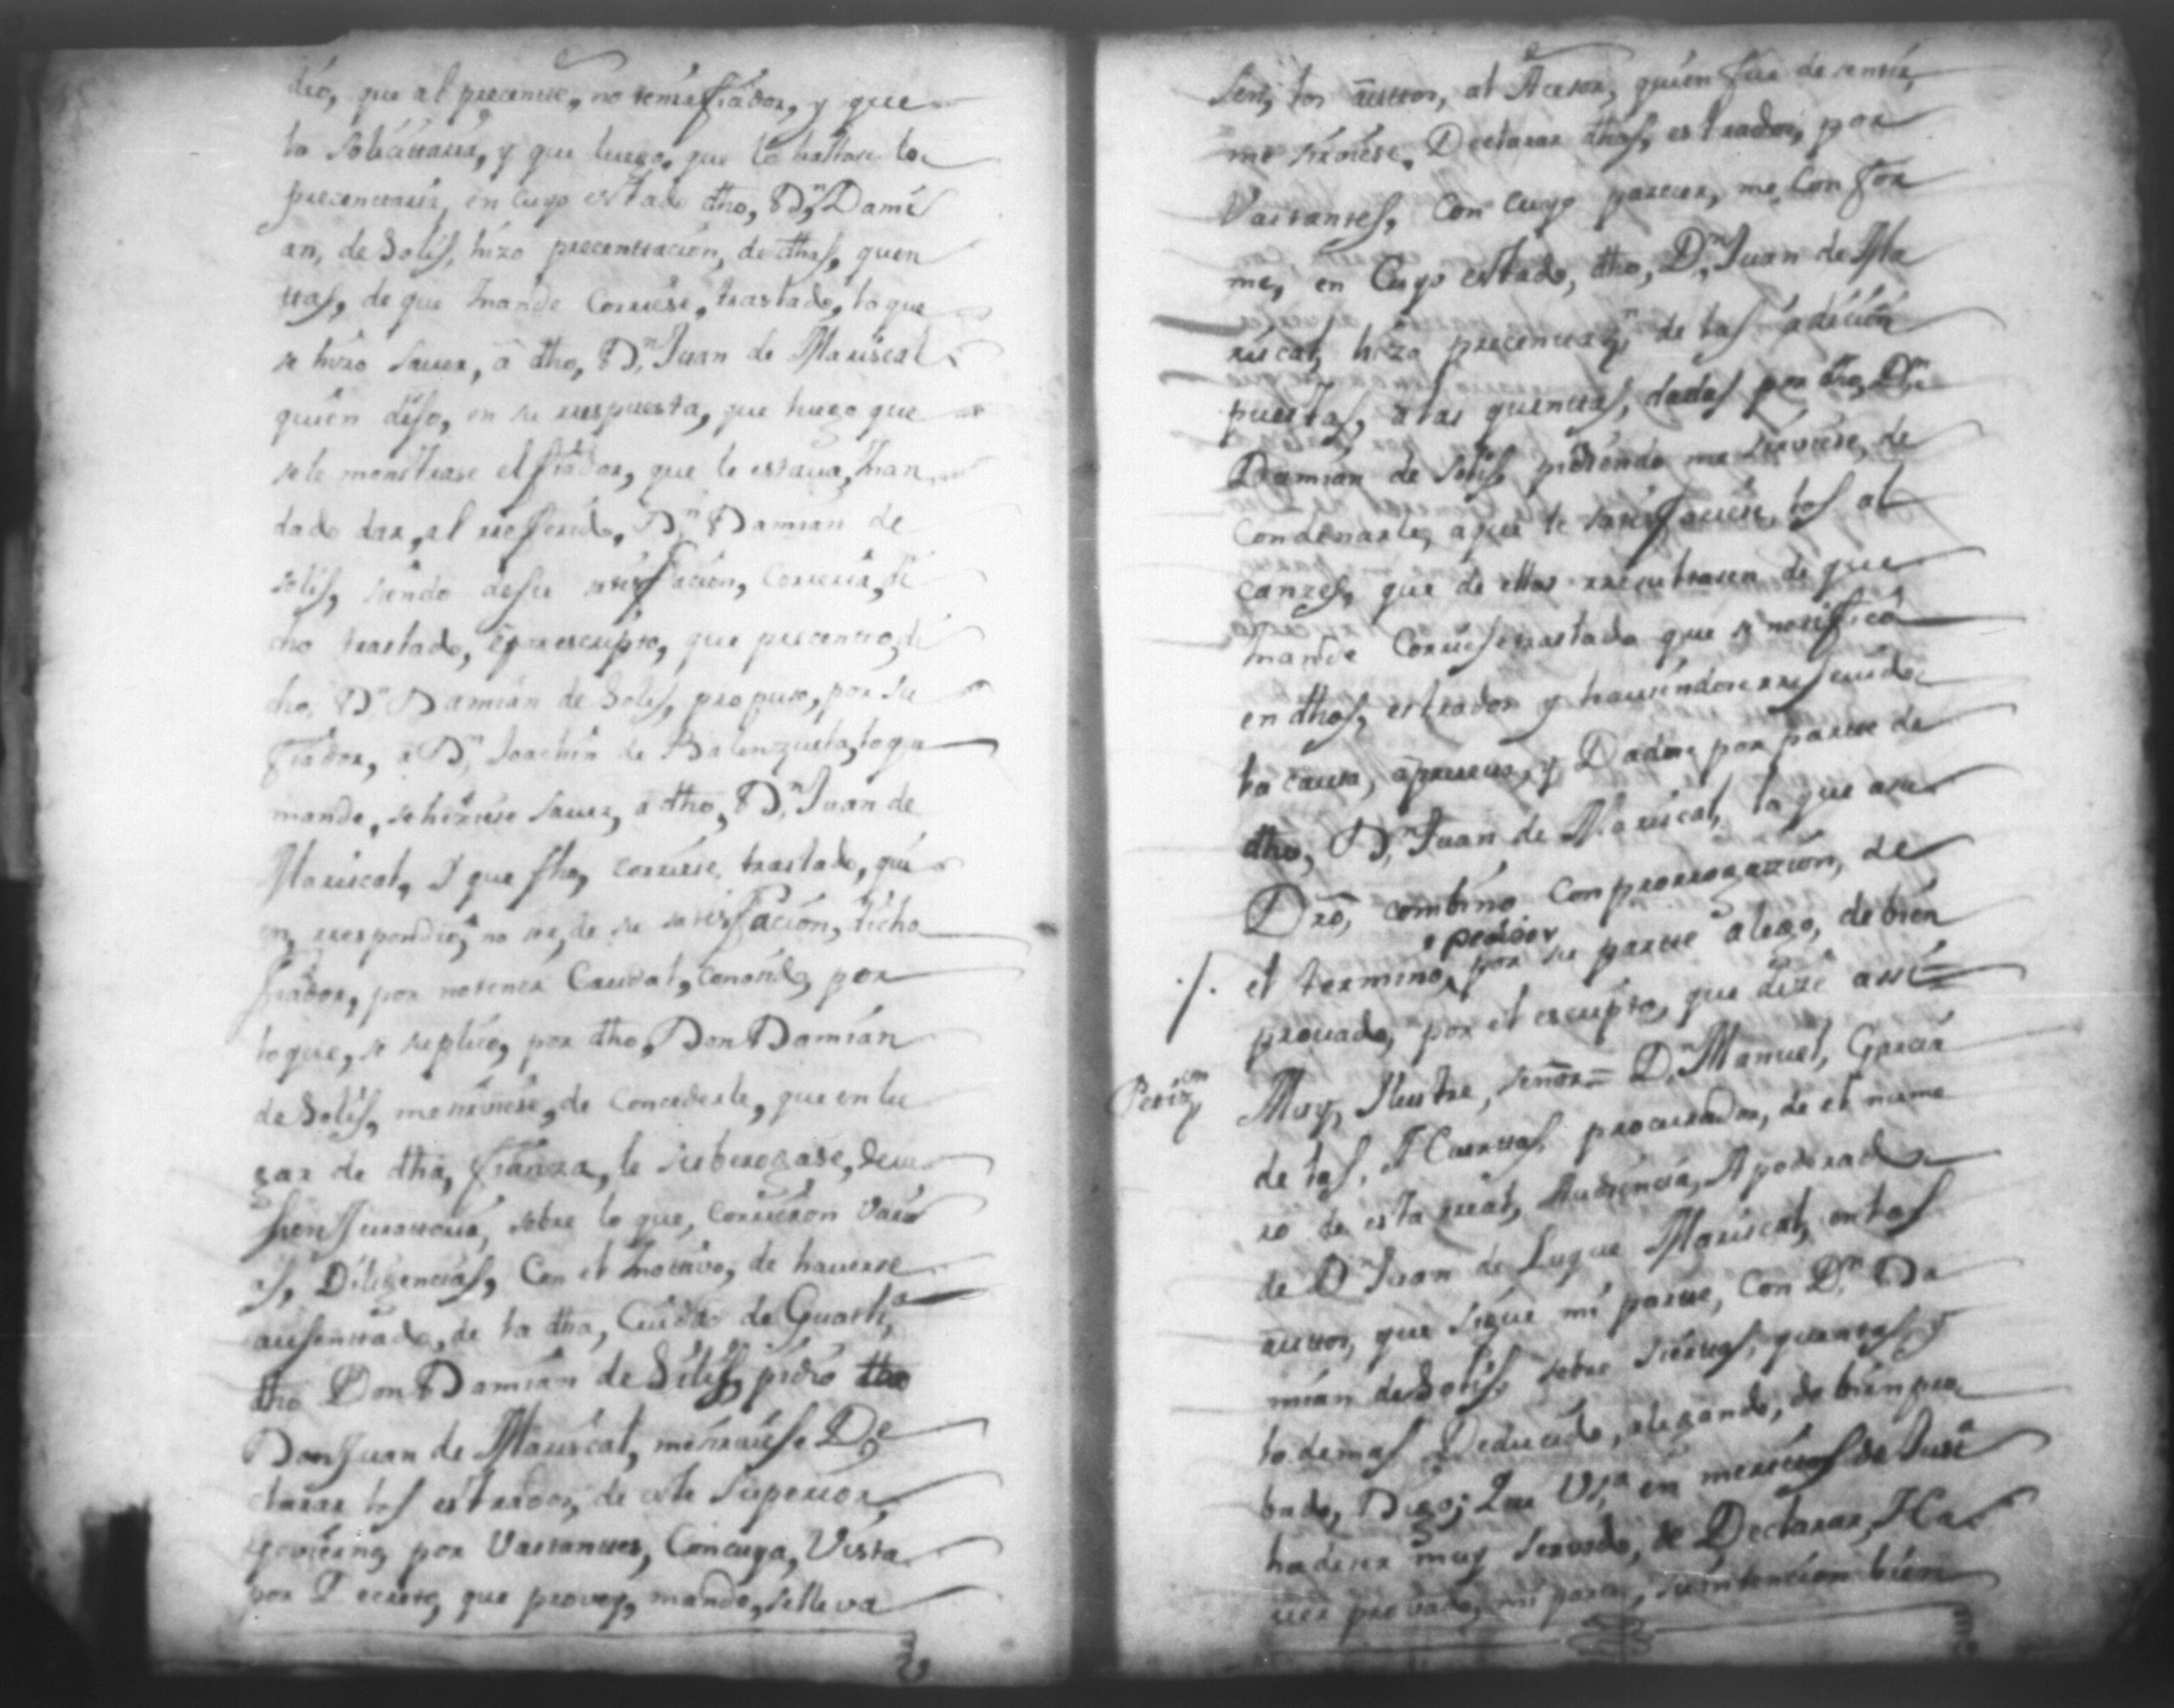 dió, que al precente, no tenia fiador, y que
lo soliçitaria, y que luego, que lo hallase lo
precentaria, en cuyo estado dho, Dn Dami
an, de Solis, hizo precentacion, de dhas, quen
tas, de que mande Corriese, traslado, lo que
se hizo saver, â dho, Dn Juan de Mariscal
quien dijo, en su rrespuesta, que luego que
se le monstrase el fiador, que le estava, man
dado dar, al rreferido, Dn Damian de
solis, siendo desu satisfacion, Correria, di
cho traslado, y por escripto, que precentro, di
cho, Dn Damian de Solis, propuso, por su
fiador, a Dn Joachin de Balenzuela, lo que
mande, se hiziese saver, a dho, Dn Juan de
Mariscal, Y que fho, corriese, traslado, qui
en, rrespondió, no ser, de su satisfacion, dicho
fiador, por no tener Caudal, conosido, por
lo que, se suplico, por dho, Don Damian
de Solis, me sirviese, de Concederle, que en lu
gar de dha, fianza, le suberogase, con
fren Juratoria, sobre lo que, Corrieron vari
as, Diligencias, Con el motivo, de haverse
ausentado, de la dha, Ciudad de Guatha,
dho Don Damian de Solis, pidio dho
Don Juan de Mariscal, me sirviese De
clarar los estrados, de este Superior,
Govierno, por Vastantes, Con cuya, Vista
por Decreto, que provey, mande, selleva
sen, los autos, al Acesor, quien fue de sentir,
me sirviese, Declarar dhos, estrados, por
Vastantes, Con cuyo parecer, me Confor
me, en Cuyo estado, dho, Dn Juan de Ma
riscal, hizo precentazn, de las adicion
puestas, a las quentas, dadas por dho, Dn
Damian de Solis, pidiendo me sirviese, de
Condenarle, a que le satisfaciese, los al
canzes, que de ellas rresultasen de que
mande Corriese traslado que se notificó
en dhos, estrados y haviendose rresevido
la causa, aprueva, y Dadose por parte de
dho, Dn Juan de Mariscal, la que asu
Dro, combino Con prorrogazion, de
./. el termino, pedidor por su parte alego, de bien
provado, por el escripto, que dize assi =
Petizon Muy, Ilustre, señor = Dn Manuel, Garcia
de las, A Cuentas, procurador, de el nume
ro de esta rreal, Audiencia, Apoderado
de Dn Juan de Luque Mariscal, en los
autos, que sigue mi parte, Con Dn Da
mian de Solis, sobre Sientas, quentas, y
lo demas Deducido, alegando, de bien pro
bado, Digo; Que VSa en meritos de Justa
ha de ser muy servido, de Declarar, Ha
ver provado, mi parte, su intencion bien